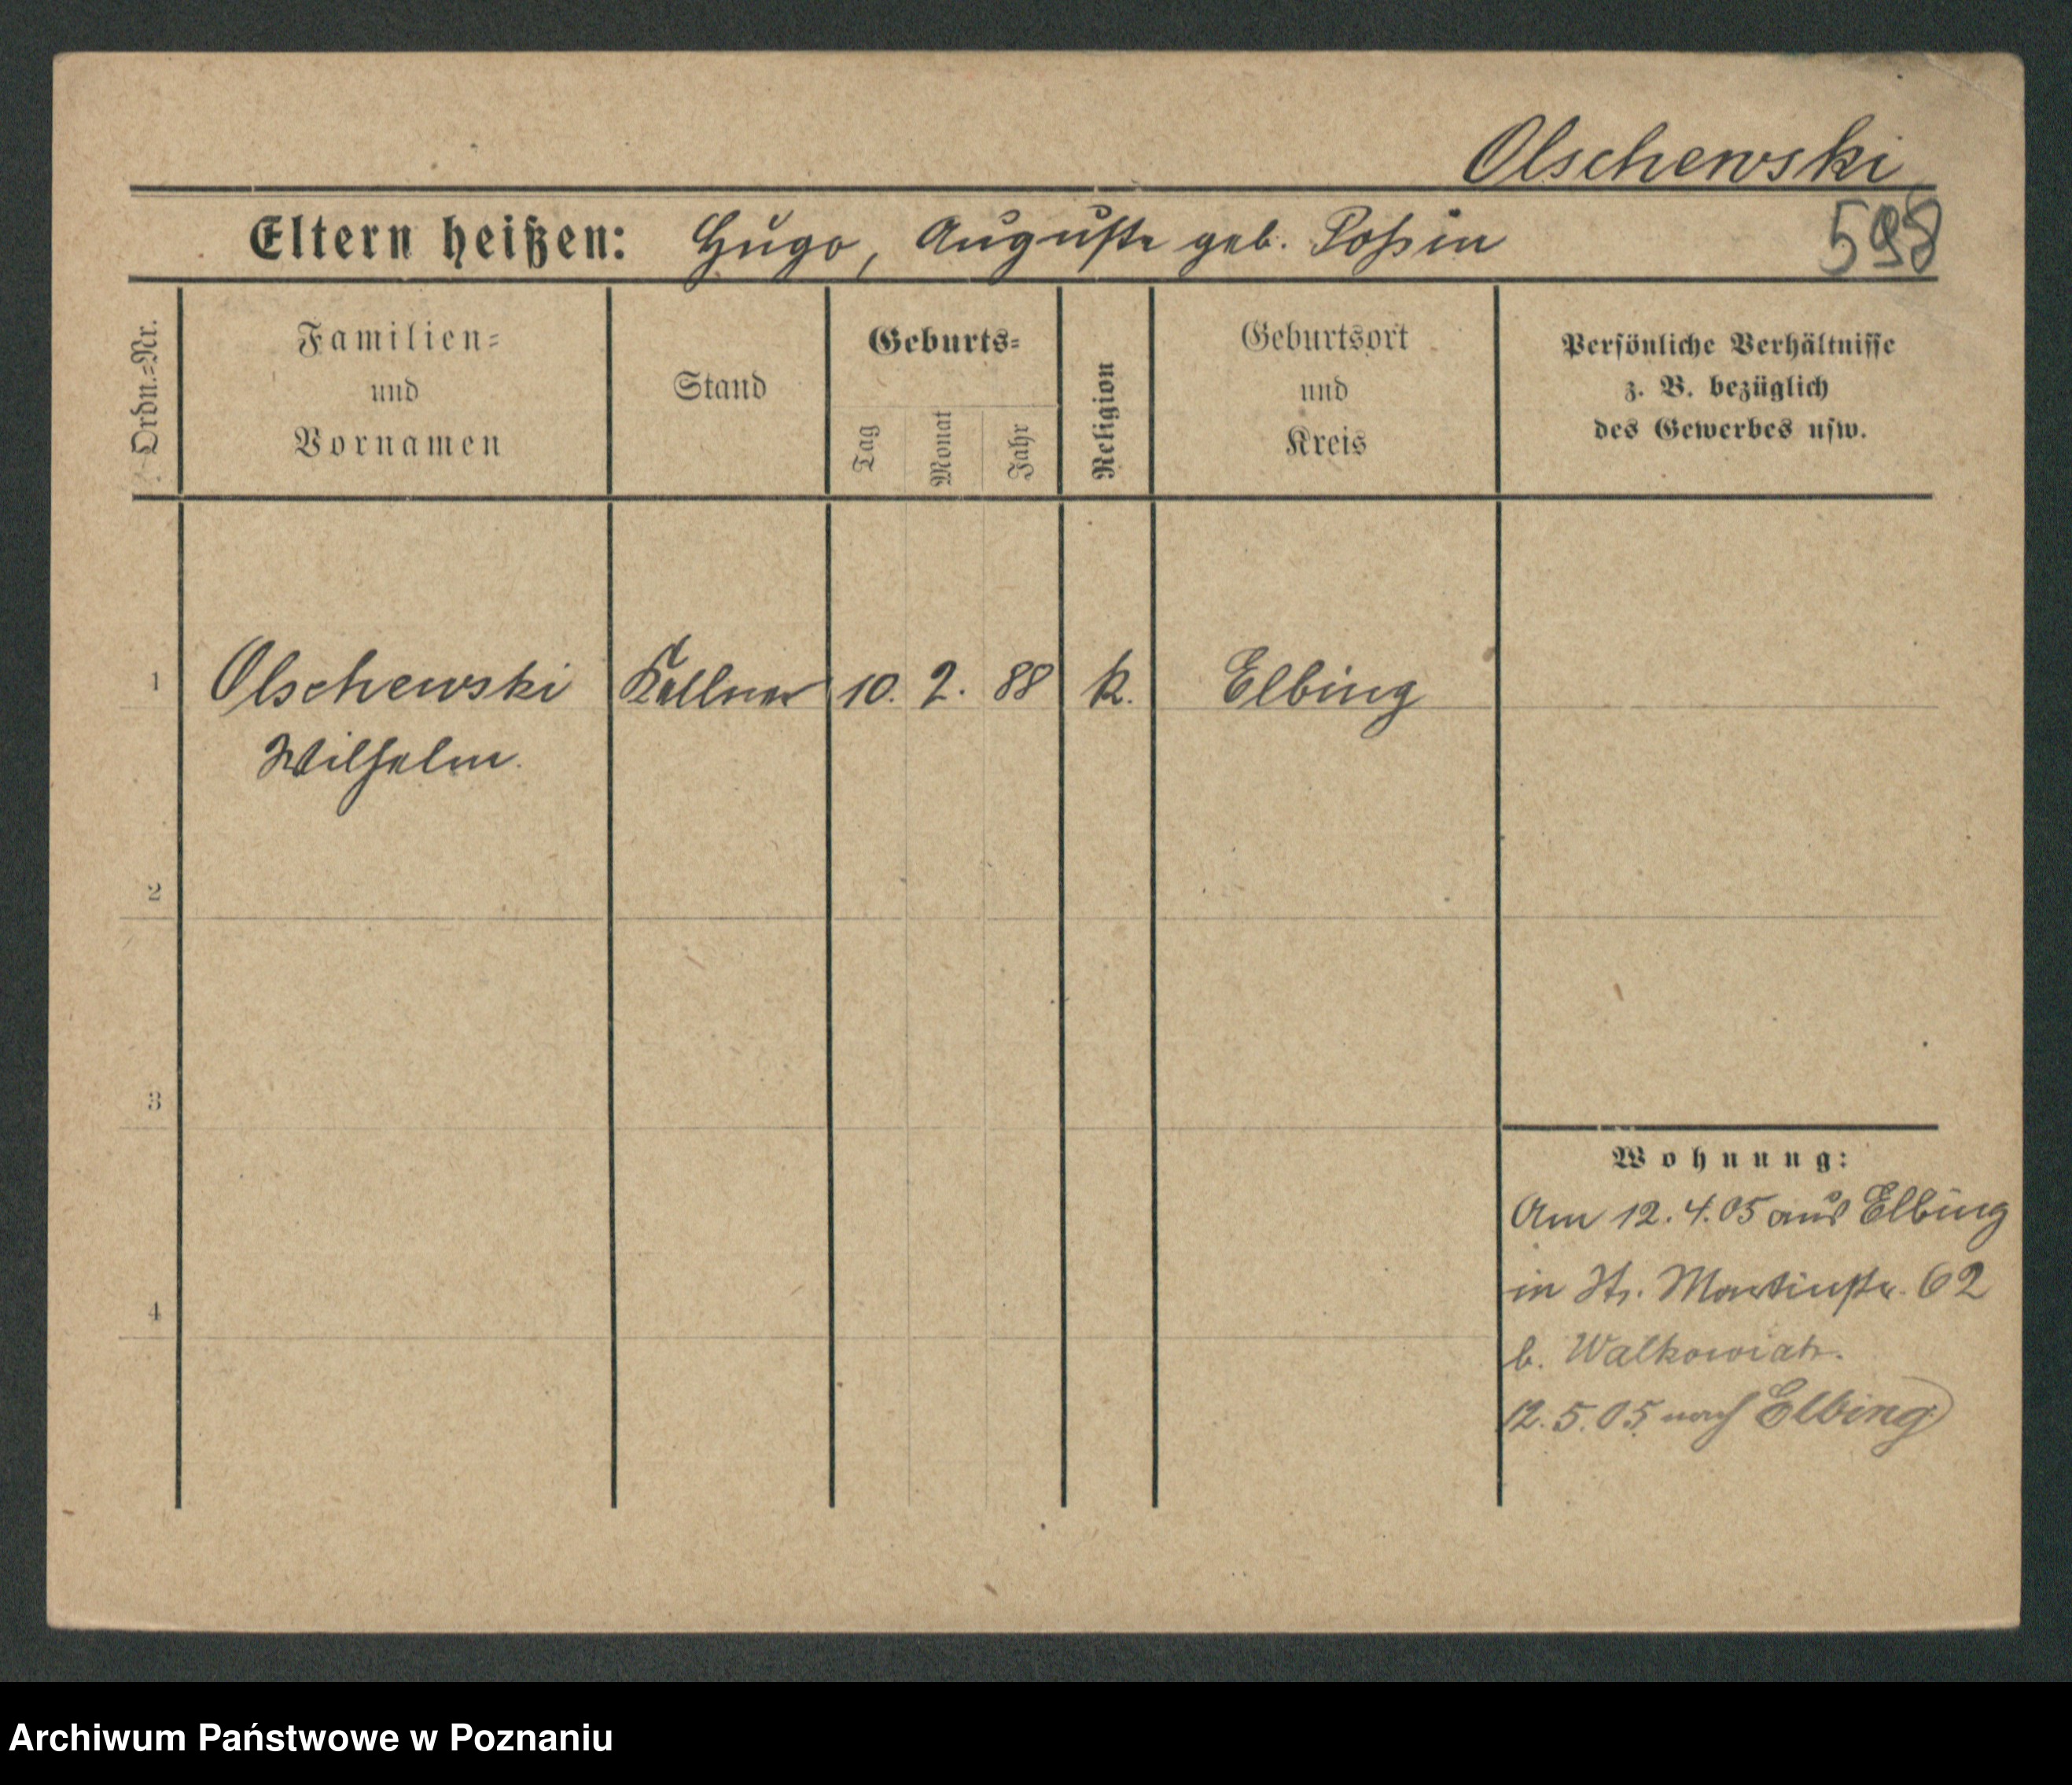 Olschewski
Eltern heißen: Hugo, Auguste geb. Poßin
598
Ordn.-Nr.
Familien-
und
Vornamen
Stand
Geburts-
Tag
Monat
Jahr
Religion
Geburtsort
und
Kreis
Persönliche Verhältnisse
z. B. bezüglich
des Gewerbes usw.
1 Olschewski Kellner 10. 2. 88 k. Elbing
Wilhelm.
2
3
4
Wohnung:
Am 12.4.05 aus Elbing
in St. Martinstr. 62
b. Walkowiak.
12.5.05 nach Elbing
Archiwum Państwowe w Poznaniu